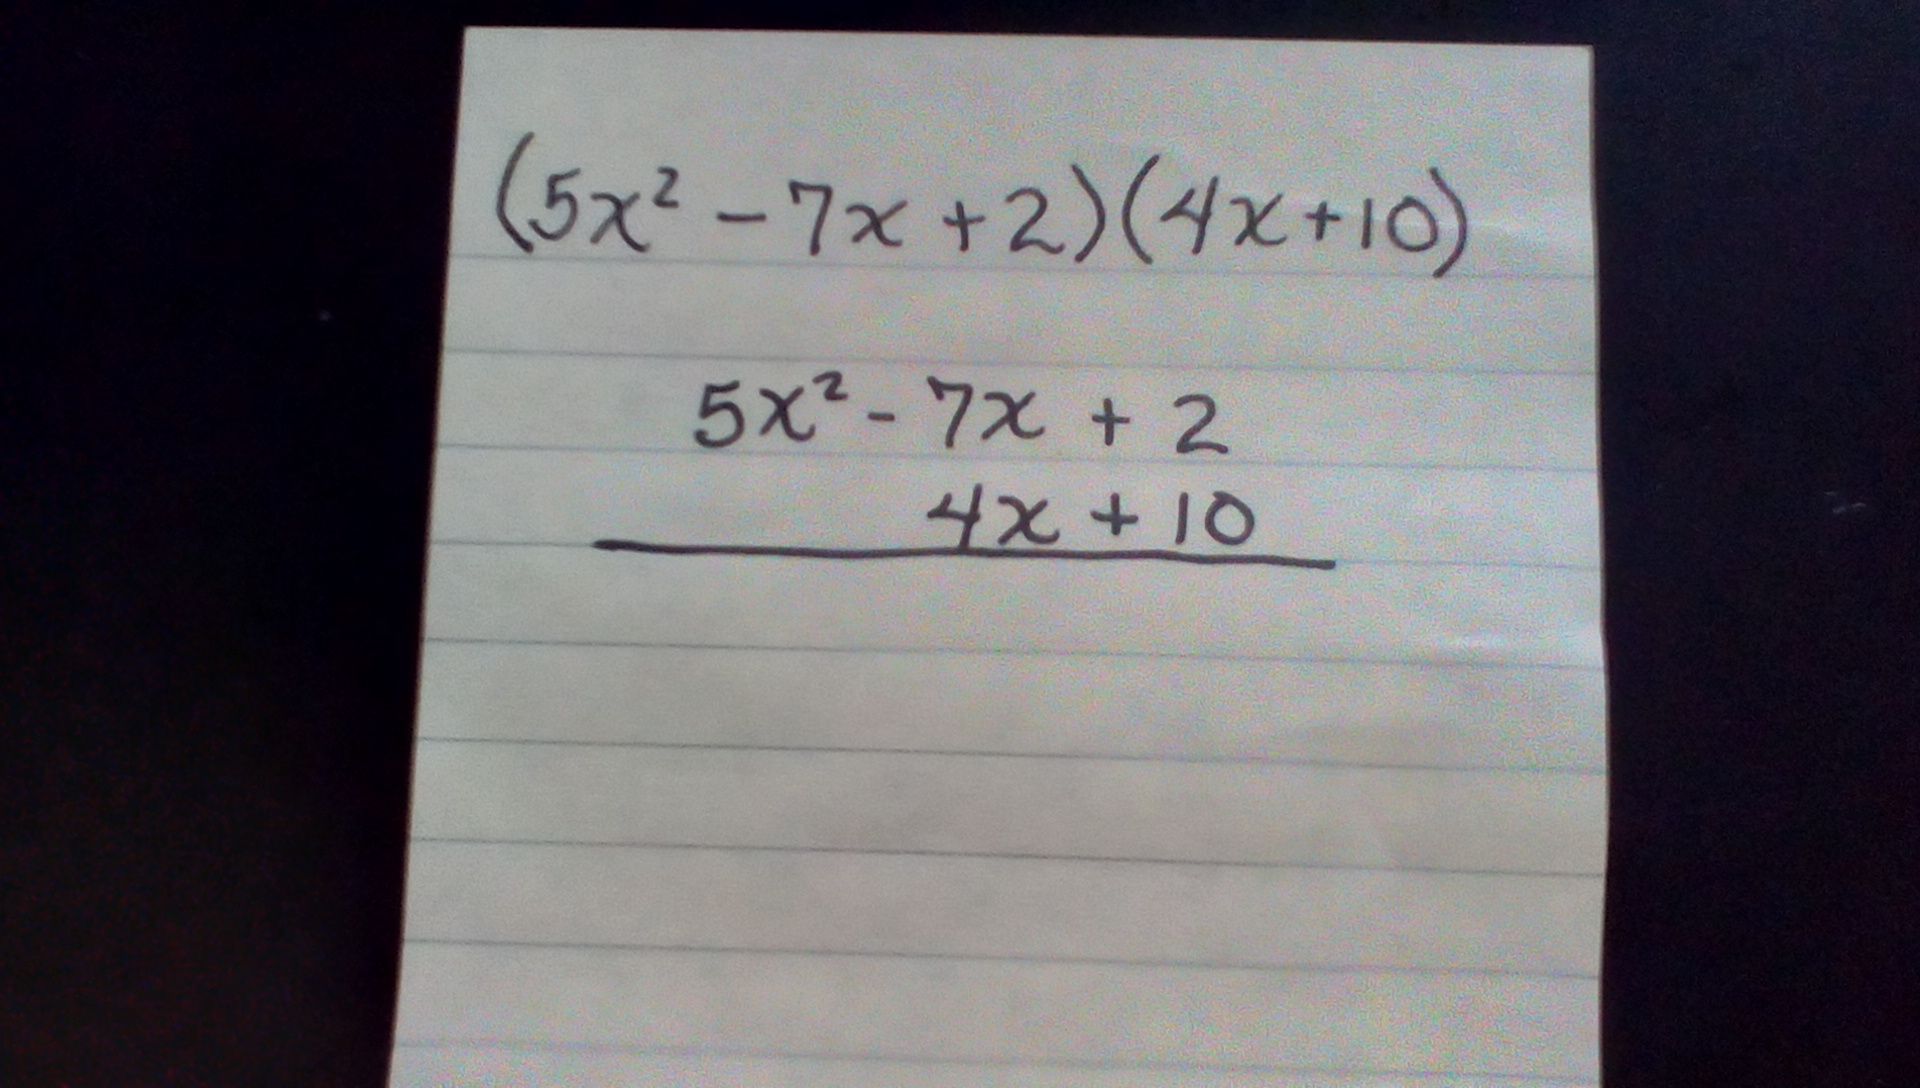 (5x² - 7x + 2)(4x + 10)
5x² - 7x + 2
4x + 10